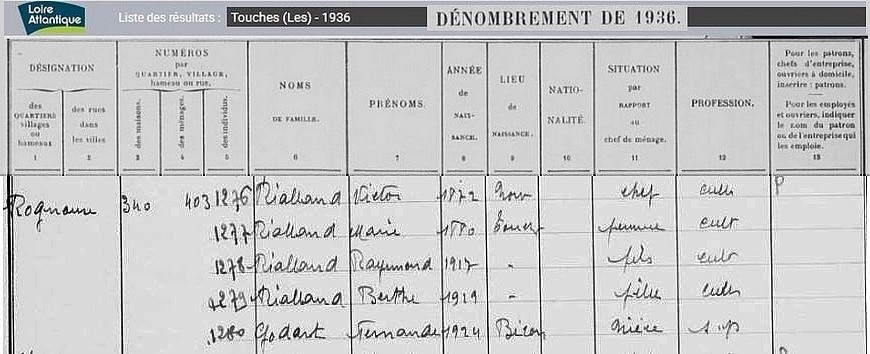 Loire Atlantique
Liste des résultats : Touches (Les) - 1936
DÉNOMBREMENT DE 1936.
DÉSIGNATION
des QUARTIERS villages ou hameaux
des rues dans les villes
NUMÉROS par QUARTIER, VILLAGE, hameau ou rue.
des maisons.
des ménages.
des individus.
NOMS DE FAMILLE.
PRÉNOMS.
ANNÉE de NAIS- SANCE.
LIEU de NAISSANCE.
NATIO- NALITÉ.
SITUATION par RAPPORT au chef de ménage.
PROFESSION.
Pour les patrons, chefs d'entreprise, ouvriers à domicile, inscrire : patrons.
Pour les employés et ouvriers, indiquer le nom du patron ou de l'entreprise qui les emploie.
1 2 3 4 5 6 7 8 9 10 11 12 13
340 403 1276 Rialland Victor 1872 chef cult P
1277 Rialland Marie 1880 femme cult
1278 Rialland Raymond 1917 - fils cult
1279 Rialland Berthe 1919 - fille cult
1280 Godart Fernande 1924 nièce s. p